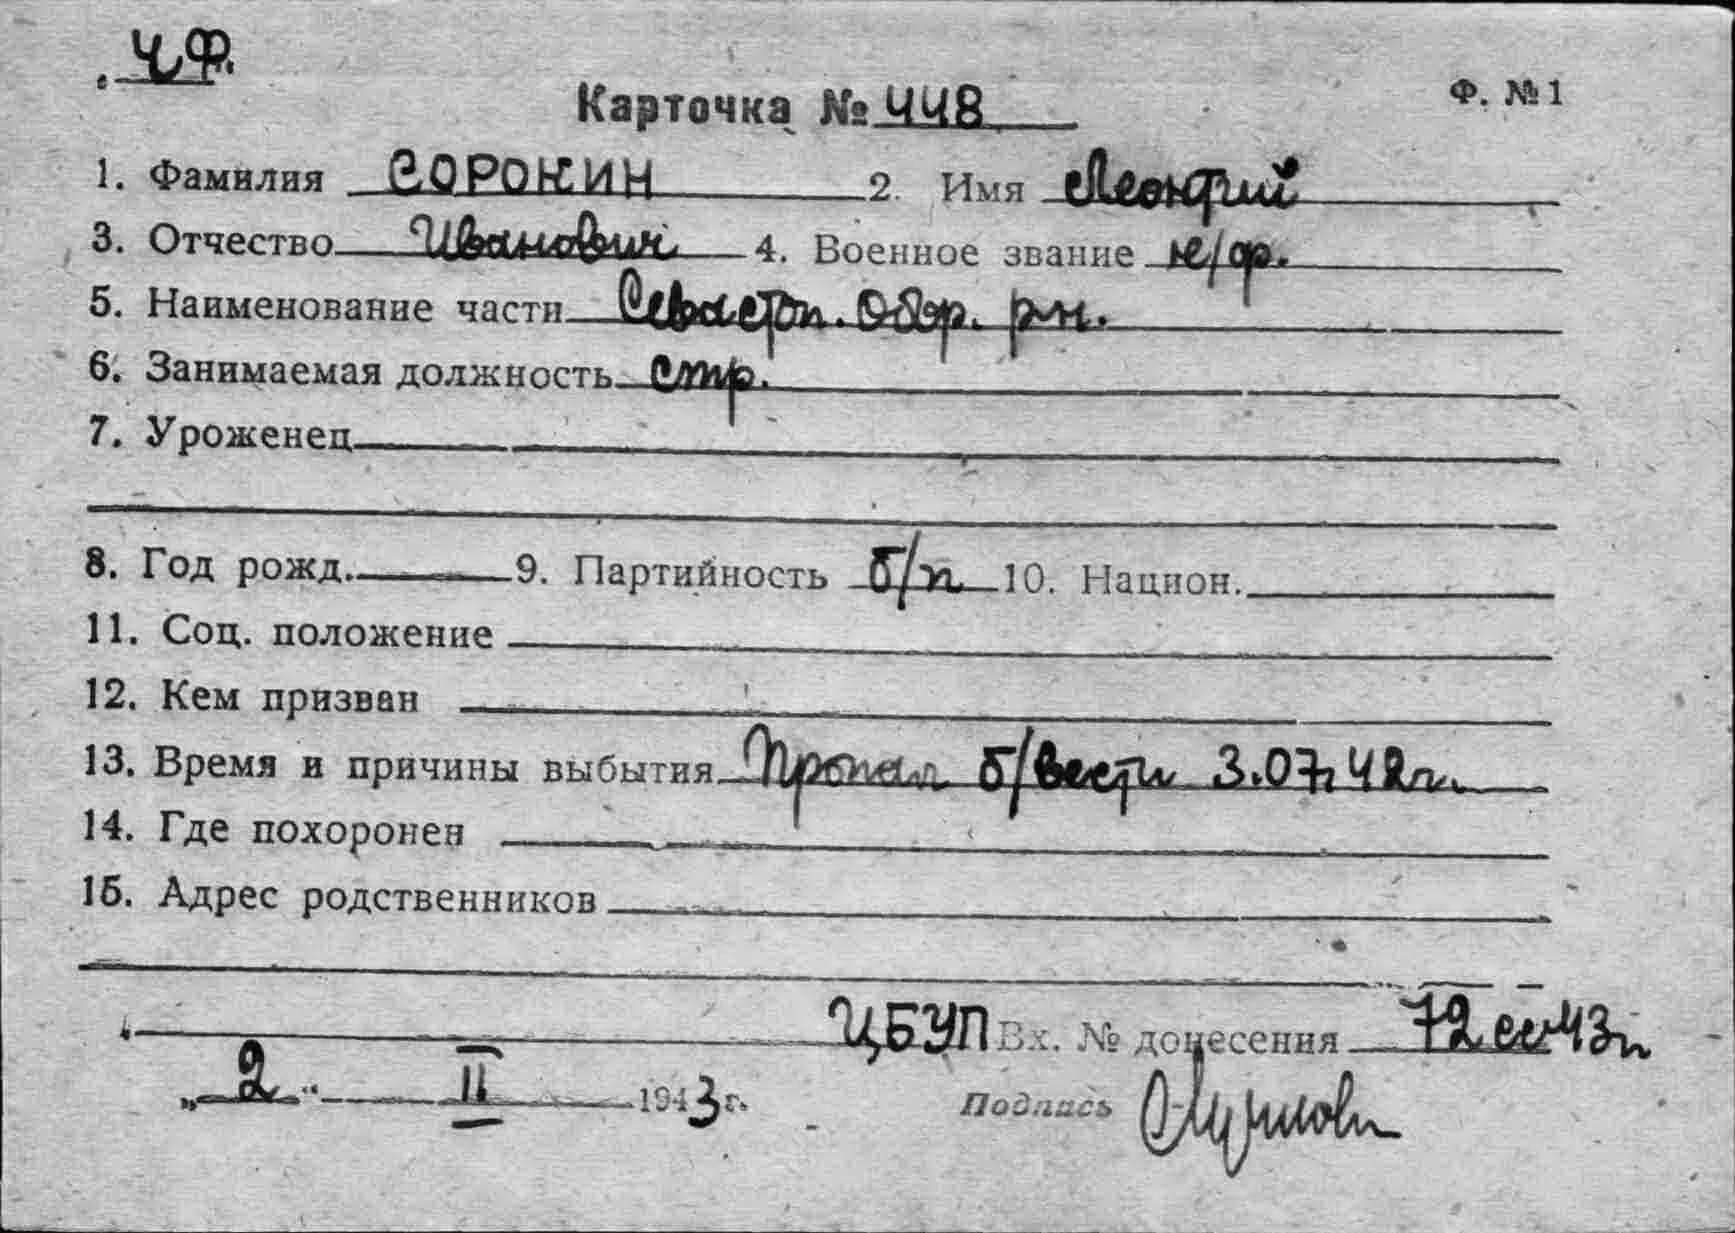 Ч.Ф.
Карточка № 448 Ф. №1
1. Фамилия СОРОКИН 2. Имя Леонтий
3. Отчество Иванович 4. Военное звание к/ф.
5. Наименование части Севастоп. Обор. рн.
6. Занимаемая должность стр.
7. Уроженец
8. Год рожд. 9. Партийность б/п 10. Национ.
11. Соц. положение
12. Кем призван
13. Время и причины выбытия Пропал б/вести 3.07.42г.
14. Где похоронен
15. Адрес родственников
ЦБУП Вх. № донесения 72сс43г
„2“ II 1943г. Подпись